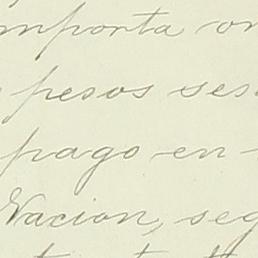 importa on
pesos ses
pago en
Nacion, seg